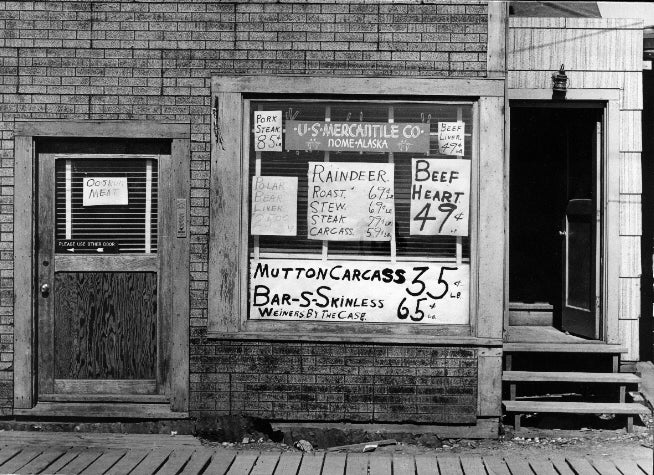 OOSKUK
MEAT
PLEASE USE OTHER DOOR
PORK
STEAK
85¢
U·S·MERCANTILE CO·
NOME·ALASKA
BEEF
LIVER
49¢
POLAR
BEAR
LIVER
RAINDEER.
ROAST. 69¢ LB
STEW. 69¢ LB
STEAK 77¢ LB
CARCASS. 59¢ LB
BEEF
HEART.
49¢
LB
MUTTON CARCASS 35¢ LB
BAR-S-SKINLESS 65¢ LB
WEINERS BY THE CASE.